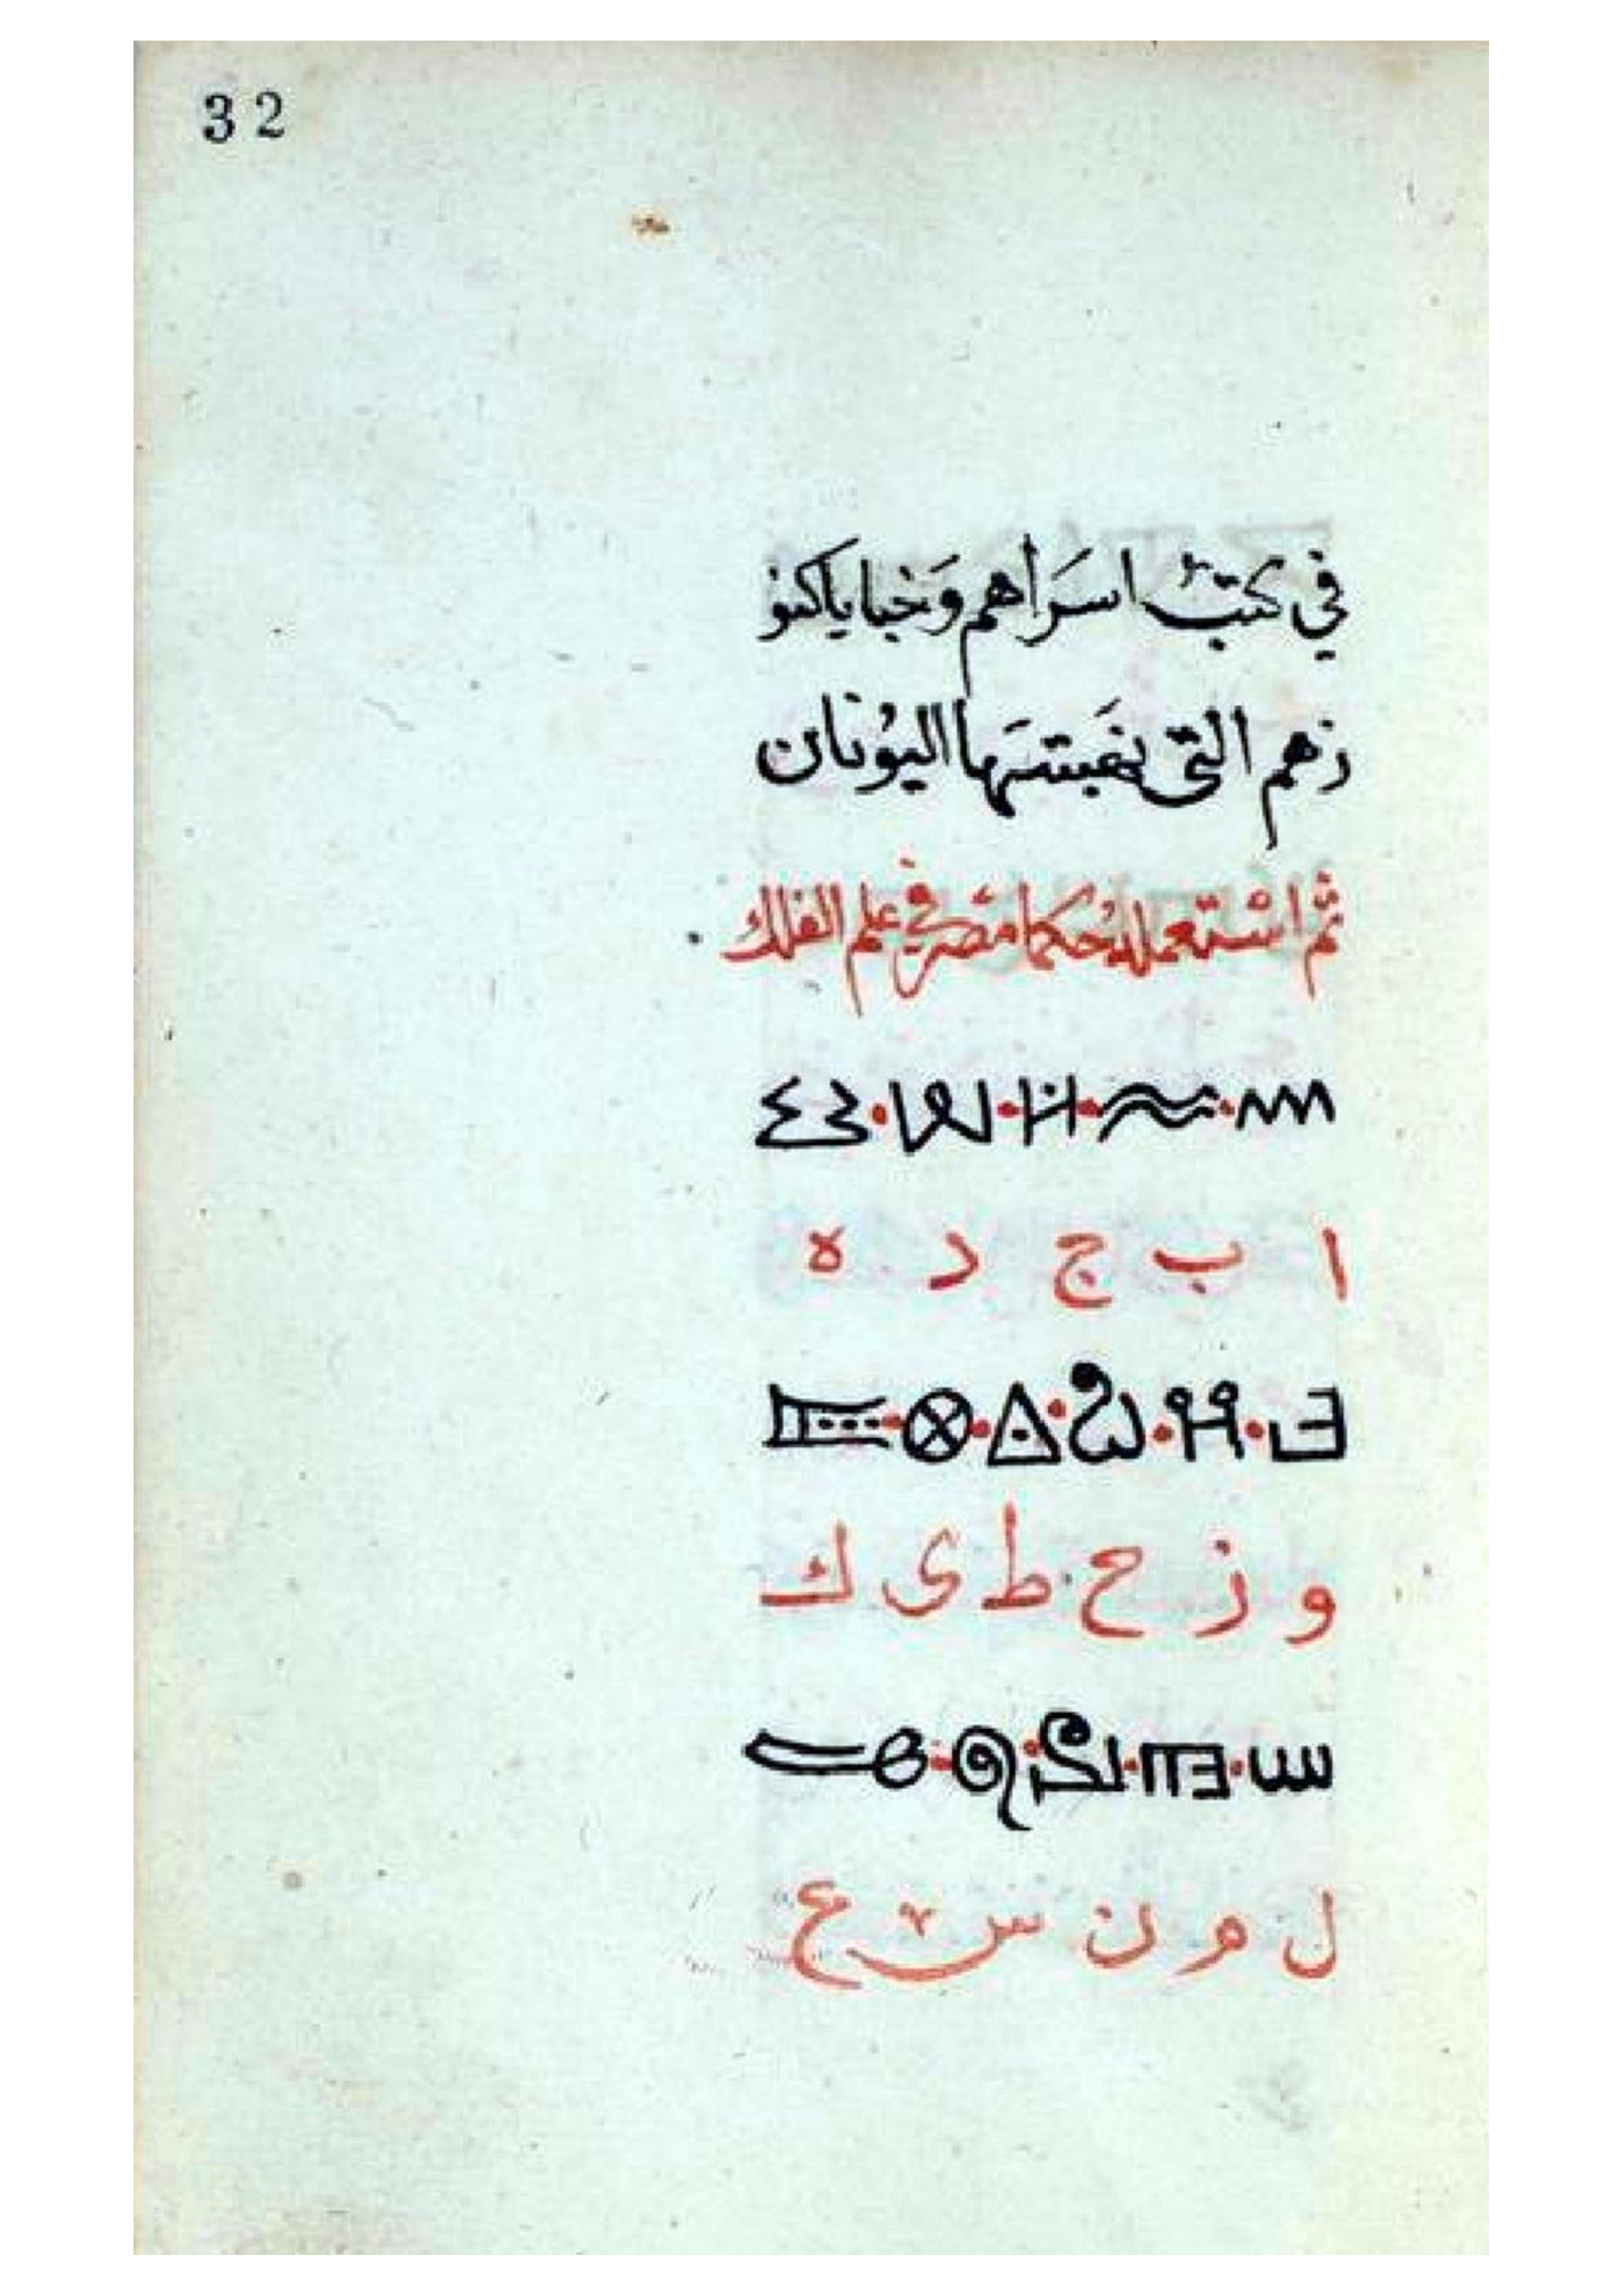 32
في كتب اسَرَاهم وَخبايا كنو
زهم التى نفبتسَها اليوُنان
ثم اسْتعمله حُكما مصْر في علم الفلك
ا ب ج د ه
و ز ح ط ى ك
ل م ن س ع